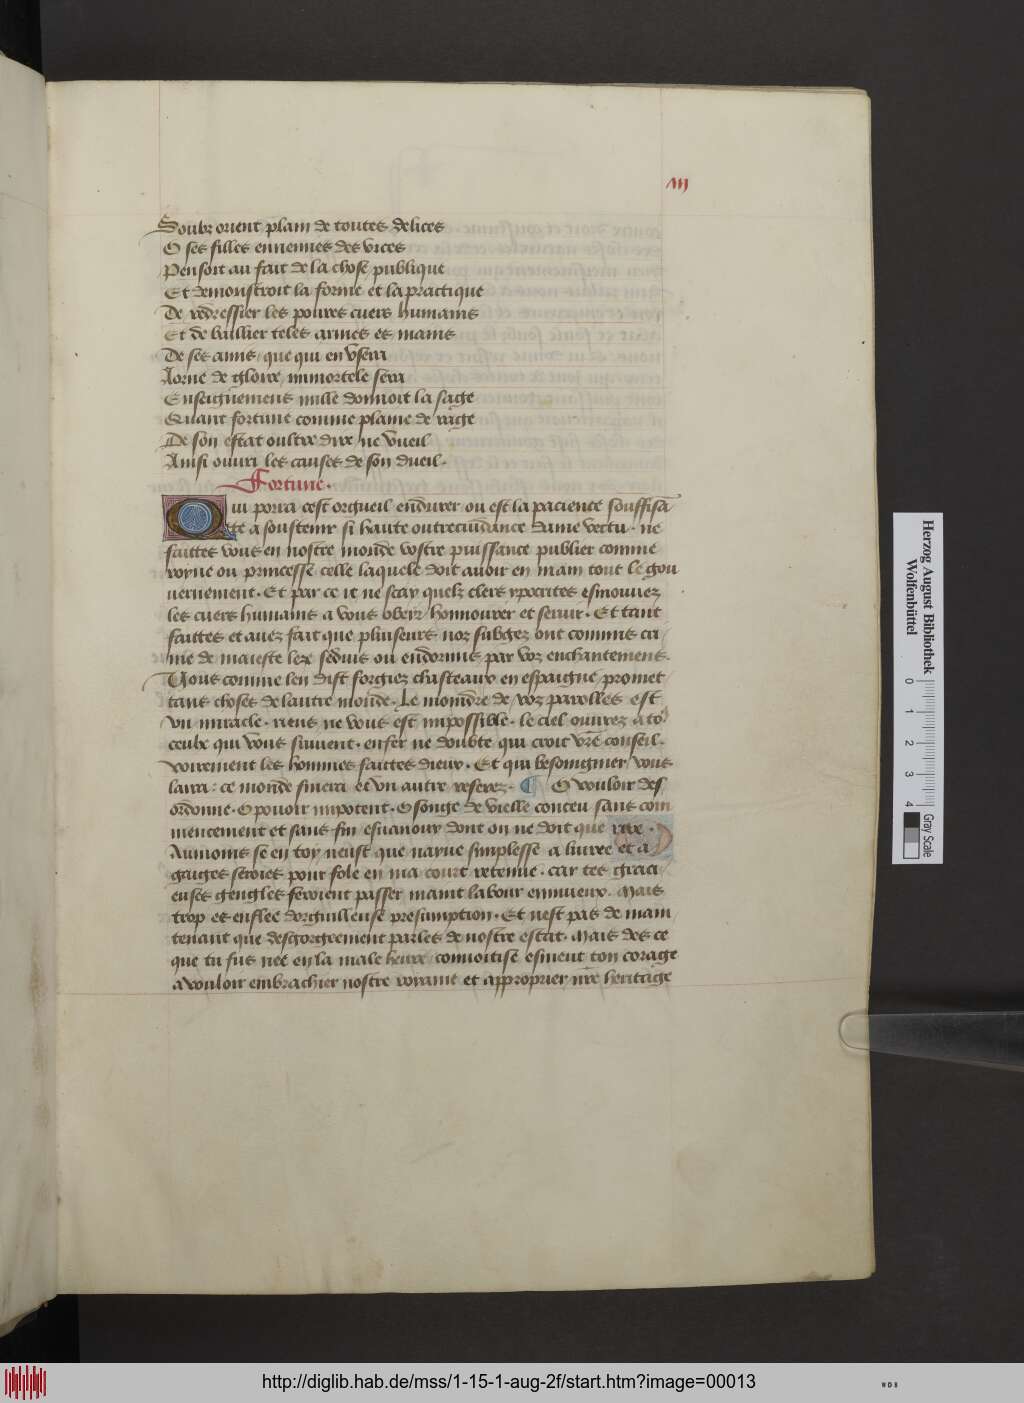 iii
Soubz orient plain de toutes delices
O ses filles ennemies des vices
Pensoit au fait de la chose publique
Et demonstroit la forme et la practique
De redressier les poures cuers humains
Et de baillier teles armes es mains
De ses amis, que qui en vsera
Aorne de gloire, immortele sera
Enseignemens mille donnoit la sage
Quant fortune comme plaine de rage
De son estat oultre dire ne vueil
Ainsi ouuri les causes de son dueil.
Fortune.
Qui porra cest orgueil endurer ou est la paciente souffisā
te a soustenir si haute oultrecuidance Dame vertu. ne
faittes vous en nostre monde vostre puissance publier comme
royne ou princesse celle laquele doit auoir en main tout le gou
uernement. Et par ce ie ne scay quelz clers ypocrites esmouuez
les cuers humains a vous obeir honnourer et seruir. Et tant
faittes et auez fait que pluiseurs noz subgez ont commis cri
me de maieste leze seduis ou endormis par voz enchantemens.
Vous comme len dist forgiez chasteaux en espaigne promet
tans choses de lautre monde. Le mondre de voz parolles est
vn miracle. riens ne vous est impossible. le ciel ouurez a to9
ceulx qui vous siuuent. enfer ne doubte qui croit vr̄e conseil.
voirement les hommes faittes dieux. Et qui besoingnier vous
laira: ce monde finera et vn autre referez. ¶ O vouloir des
ordonne. O pouoir impotent. O songe de vielle conceu sans com
mencement et sans fin esuanouy dont on ne doit que rire.
Aumoins se en toy neust que nayue simplesse a liuree et a
gaiges seroies pour fole en ma court retenue. car tes graci
euses gengles feroient passer maint labour ennuieux. Mais
trop es enflee dorguilleuse presumption. Et nest pas de main
tenant que desgorgeement parles de nostre estat. Mais des ce
que tu fus nee en la male heure, conuoitise esmeut ton corage
a vouloir embrachier nostre royame et approprier nr̄e heritage
Herzog August Bibliothek
Wolfenbüttel
0
1
2
3
4
Gray Scale
http://diglib.hab.de/mss/1-15-1-aug-2f/start.htm?image=00013
WDB